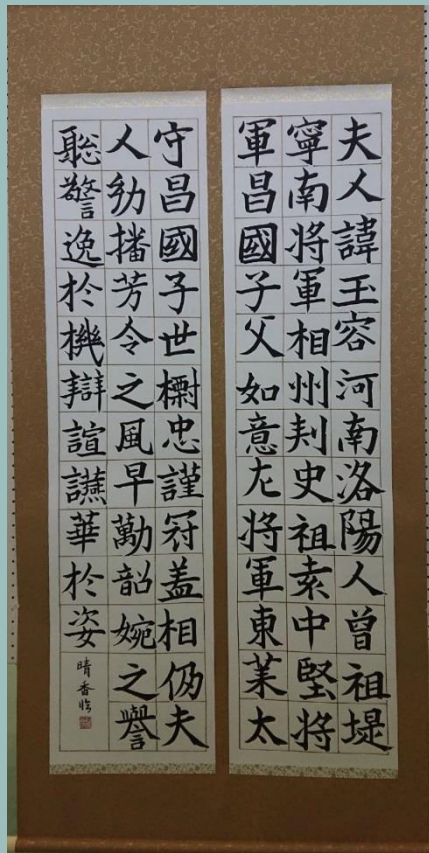 夫人諱玉容河南洛陽人曾祖堤
寧南将軍相州刾史祖素中堅将
軍昌國子父如意左将軍東莱太
守昌國子世樹忠謹冠盖相仍夫
人幼播芳令之風早勱韶婉之譽
聡警逸於機辯諠讌華於姿
晴香臨